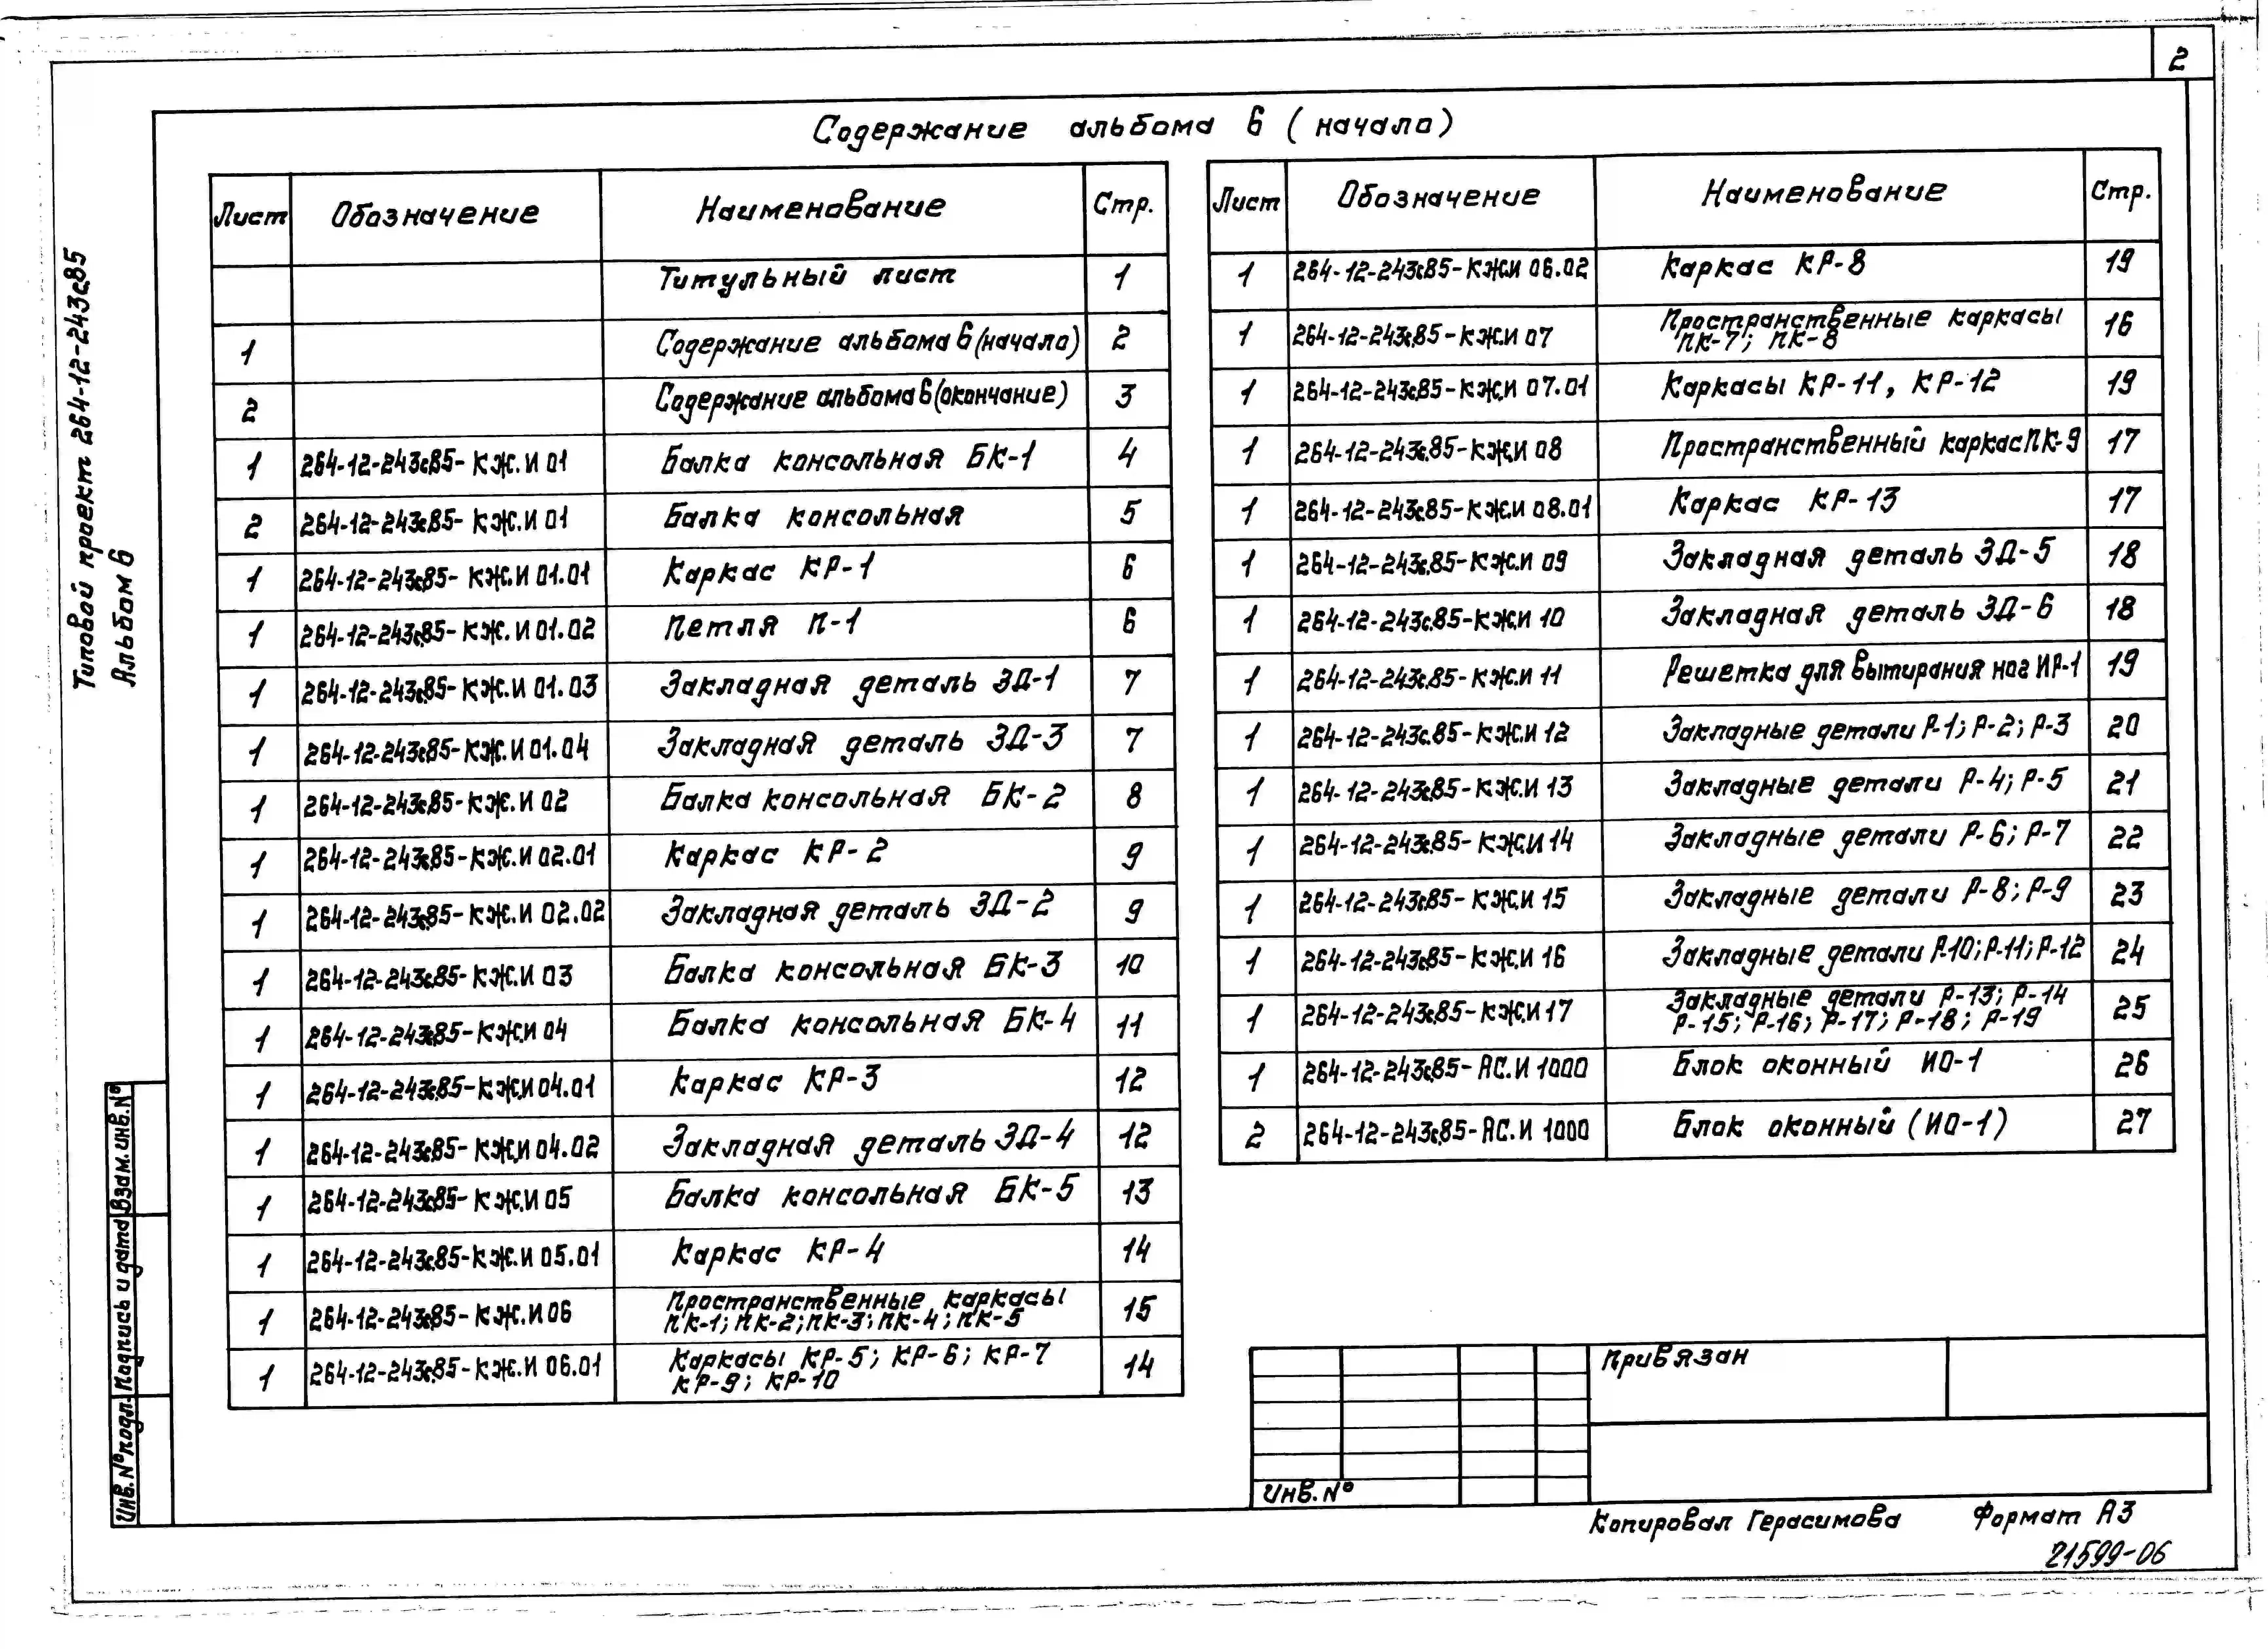 2
Типовой проект 264-12-243с.85
Альбом 6
Содержание альбома 6 (начало)
Лист Обозначение Наименование Стр.
Титульный лист 1
1 Содержание альбома 6 (начало) 2
2 Содержание альбома 6 (окончание) 3
1 264-12-243с.85-КЖ.И 01 Балка консольная БК-1 4
2 264-12-243с.85-КЖ.И 01 Балка консольная 5
1 264-12-243с.85-КЖ.И 01.01 Каркас КР-1 6
1 264-12-243с.85-КЖ.И 01.02 Петля П-1 6
1 264-12-243с.85-КЖ.И 01.03 Закладная деталь ЗД-1 7
1 264-12-243с.85-КЖ.И 01.04 Закладная деталь ЗД-3 7
1 264-12-243с.85-КЖ.И 02 Балка консольная БК-2 8
1 264-12-243с.85-КЖ.И 02.01 Каркас КР-2 9
1 264-12-243с.85-КЖ.И 02.02 Закладная деталь ЗД-2 9
1 264-12-243с.85-КЖ.И 03 Балка консольная БК-3 10
1 264-12-243с.85-КЖ.И 04 Балка консольная БК-4 11
1 264-12-243с.85-КЖ.И 04.01 Каркас КР-3 12
1 264-12-243с.85-КЖ.И 04.02 Закладная деталь ЗД-4 12
1 264-12-243с.85-КЖ.И 05 Балка консольная БК-5 13
1 264-12-243с.85-КЖ.И 05.01 Каркас КР-4 14
1 264-12-243с.85-КЖ.И 06 Пространственные каркасы 15
ПК-1; ПК-2; ПК-3; ПК-4; ПК-5
1 264-12-243с.85-КЖ.И 06.01 Каркасы КР-5; КР-6; КР-7 14
КР-9; КР-10
Лист Обозначение Наименование Стр.
1 264-12-243с.85-КЖ.И 06.02 Каркас КР-8 19
1 264-12-243с.85-КЖ.И 07 Пространственные каркасы 16
ПК-7; ПК-8
1 264-12-243с.85-КЖ.И 07.01 Каркасы КР-11, КР-12 19
1 264-12-243с.85-КЖ.И 08 Пространственный каркас ПК-9 17
1 264-12-243с.85-КЖ.И 08.01 Каркас КР-13 17
1 264-12-243с.85-КЖ.И 09 Закладная деталь ЗД-5 18
1 264-12-243с.85-КЖ.И 10 Закладная деталь ЗД-6 18
1 264-12-243с.85-КЖ.И 11 Решетка для вытирания ног ИР-1 19
1 264-12-243с.85-КЖ.И 12 Закладные детали Р-1; Р-2; Р-3 20
1 264-12-243с.85-КЖ.И 13 Закладные детали Р-4; Р-5 21
1 264-12-243с.85-КЖ.И 14 Закладные детали Р-6; Р-7 22
1 264-12-243с.85-КЖ.И 15 Закладные детали Р-8; Р-9 23
1 264-12-243с.85-КЖ.И 16 Закладные детали Р-10; Р-11; Р-12 24
1 264-12-243с.85-КЖ.И 17 Закладные детали Р-13; Р-14 25
Р-15; Р-16; Р-17; Р-18; Р-19
1 264-12-243с.85-АС.И 1000 Блок оконный ИО-1 26
2 264-12-243с.85-АС.И 1000 Блок оконный (ИО-1) 27
Взам. инв. №
Подпись и дата
Инв. № подл.
Привязан
Инв. №
Копировал Герасимова Формат А3
21599-06